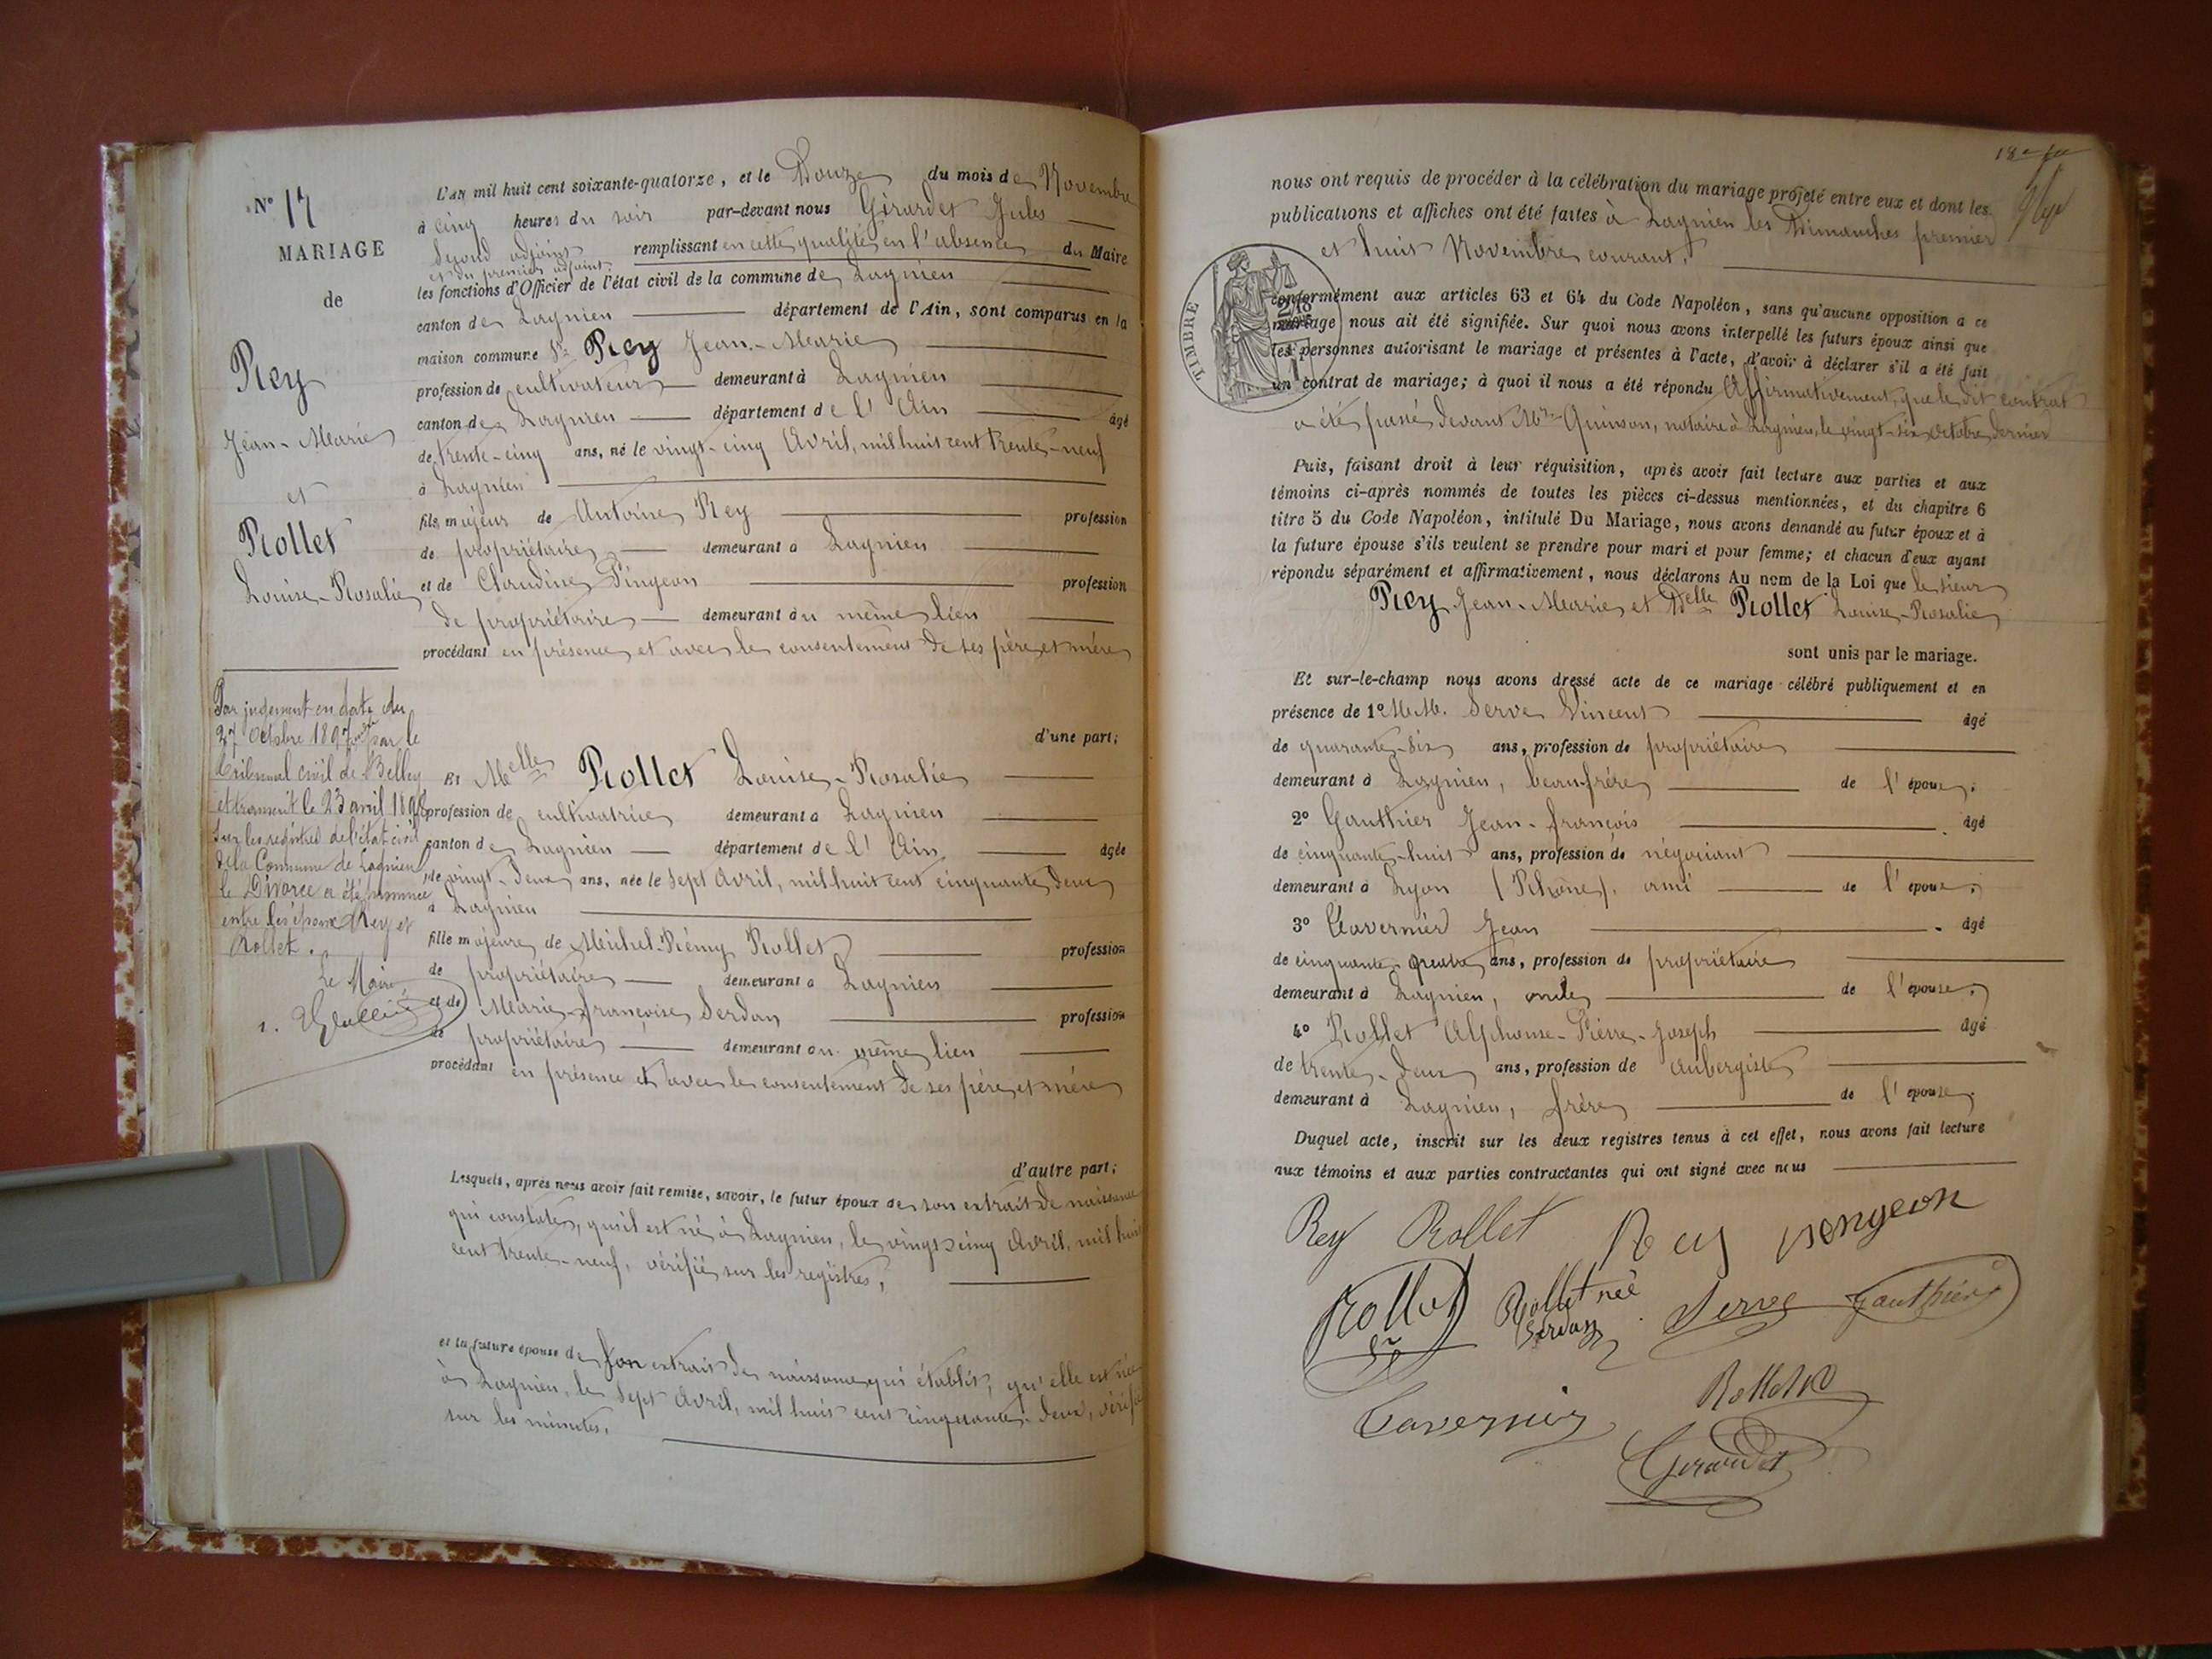 N° 17
MARIAGE
de
Rey
Jean-Marie
et
Rollet
Louise-Rosalie
Par jugement en date du
27 Octobre 1897 par le
tribunal civil de Belley
et transcrit le 23 avril
sur les registres de l'état civil
de la Commune de Lagnieu,
le Divorce a été prononcé
entre les époux Rey et
Rollet.
Le Maire,
L'AN mil huit cent soixante-quatorze, et le Douze du mois de Novembre
à cinq heures du soir par-devant nous Girardet Jules
Second adjoint remplissant en cette qualité en l'absence du Maire
et du premier adjoint
les fonctions d'Officier de l'état civil de la commune de Lagnieu
canton de Lagnieu département de l'Ain, sont comparus en la
maison commune Sr Rey Jean-Marie
profession de cultivateur demeurant à Lagnieu
canton de Lagnieu département de l'Ain âgé
de trente-cinq ans, né le vingt-cinq Avril, mil huit cent trente-neuf
à Lagnieu
fils majeur de Antoine Rey profession
de propriétaire demeurant à Lagnieu
et de Claudine Pingeon profession
de propriétaire demeurant au même lieu
procédant en présence et avec le consentement de ses père et mère
d'une part;
Et Melle Rollet Louise-Rosalie
profession de cultivatrice demeurant à Lagnieu
canton de Lagnieu département de l'Ain âgée
de vingt-deux ans, née le sept Avril, mil huit cent cinquante deux
à Lagnieu
fille majeure de Michel-Rémy Rollet profession
de propriétaire demeurant à Lagnieu
et de Marie-françoise Serdon profession
de propriétaire demeurant au même lieu
procédant en présence et avec le consentement de ses père et mère
d'autre part;
Lesquels, après nous avoir fait remise, savoir, le futur époux de son extrait de naissance
qui constate, qu'il est né à Lagnieu, le vingt cinq Avril, mil huit
cent trente-neuf, vérifié sur les registres,
et la future épouse de son extrait de naissance qui établit, qu'elle est née
à Lagnieu, le sept Avril, mil huit cent cinquante-deux, vérifié
sur les minutes.
nous ont requis de procéder à la célébration du mariage projeté entre eux et dont les
publications et affiches ont été faites à Lagnieu les Dimanches premier
et huit Novembre courant,
TIMBRE
conformément aux articles 63 et 64 du Code Napoléon, sans qu'aucune opposition a ce
mariage nous ait été signifiée. Sur quoi nous avons interpellé les futurs époux ainsi que
les personnes autorisant le mariage et présentes à l'acte, d'avoir à déclarer s'il a été fait
un contrat de mariage; à quoi il nous a été répondu Affirmativement, que le dit contrat
a été passé devant Me Quinson, notaire à Lagnieu, le vingt-six Octobre dernier
Puis, faisant droit à leur réquisition, après avoir fait lecture aux parties et aux
témoins ci-après nommés de toutes les pièces ci-dessus mentionnées, et du chapitre 6
titre 5 du Code Napoléon, intitulé Du Mariage, nous avons demandé au futur époux et à
la future épouse s'ils veulent se prendre pour mari et pour femme; et chacun d'eux ayant
répondu séparément et affirmativement, nous déclarons Au nom de la Loi que le sieur
Rey Jean-Marie et Delle Rollet Louise-Rosalie
sont unis par le mariage.
Et sur-le-champ nous avons dressé acte de ce mariage célébré publiquement et en
présence de 1° M.M. Serve Vincent âgé
de quarante-six ans, profession de propriétaire
demeurant à Lagnieu, beau-frère de l'épouse;
2° Gauthier Jean-françois âgé
de cinquante-huit ans, profession de négociant
demeurant à Lyon (Rhône), ami de l'épouse;
3° Tavernier Jean âgé
de cinquante-quatre ans, profession de propriétaire
demeurant à Lagnieu, oncle de l'épouse,
4° Rollet Alphonse-Pierre-Joseph âgé
de trente-deux ans, profession de aubergiste
demeurant à Lagnieu, frère de l'épouse.
Duquel acte, inscrit sur les deux registres tenus à cet effet, nous avons fait lecture
aux témoins et aux parties contractantes qui ont signé avec nous
Rey Rollet Rey pengeon
Rollet Rollet née Serdon Serve Gauthier
Tavernier Rollet
Girardet